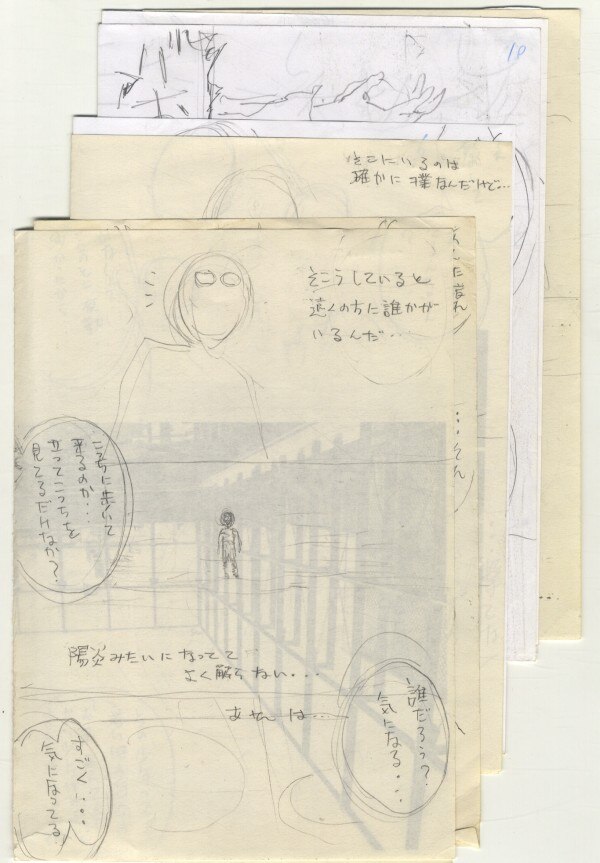 18
そこにいるのは
確かに僕なんだけど…
そうしていると
遠くの方に誰かが
いるんだ…
こっちに歩いて
来るのか…
立ってこっちを
見てるだけなのか？
陽炎みたいになってて
よく解らない…
誰だろう？
気になる…
すごく…
気になってる